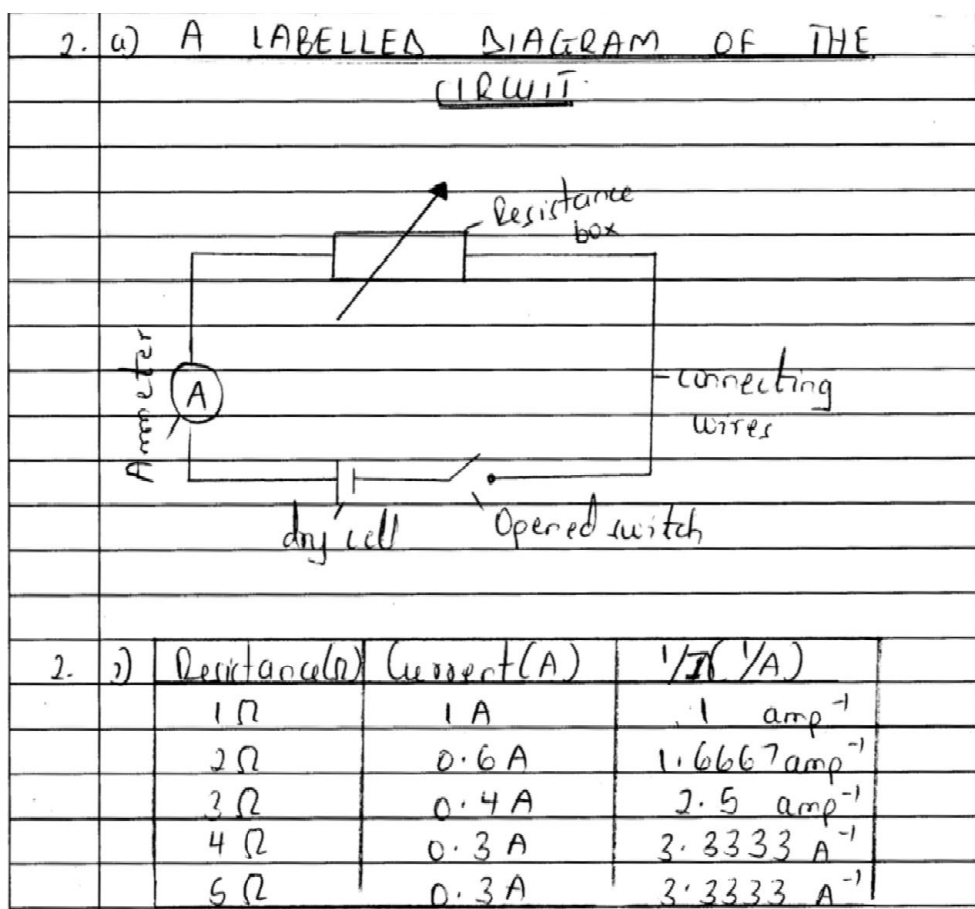 2. a) A LABELLED DIAGRAM OF THE
CIRCUIT.
Resistance
box
Ammeter
A
connecting
wires
dry cell
Opened switch
2. i) Resistance(Ω) Current(A) 1/I(1/A)
1 Ω 1 A 1 amp⁻¹
2 Ω 0.6 A 1.6667 amp⁻¹
3 Ω 0.4 A 2.5 amp⁻¹
4 Ω 0.3 A 3.3333 A⁻¹
5 Ω 0.3 A 3.3333 A⁻¹